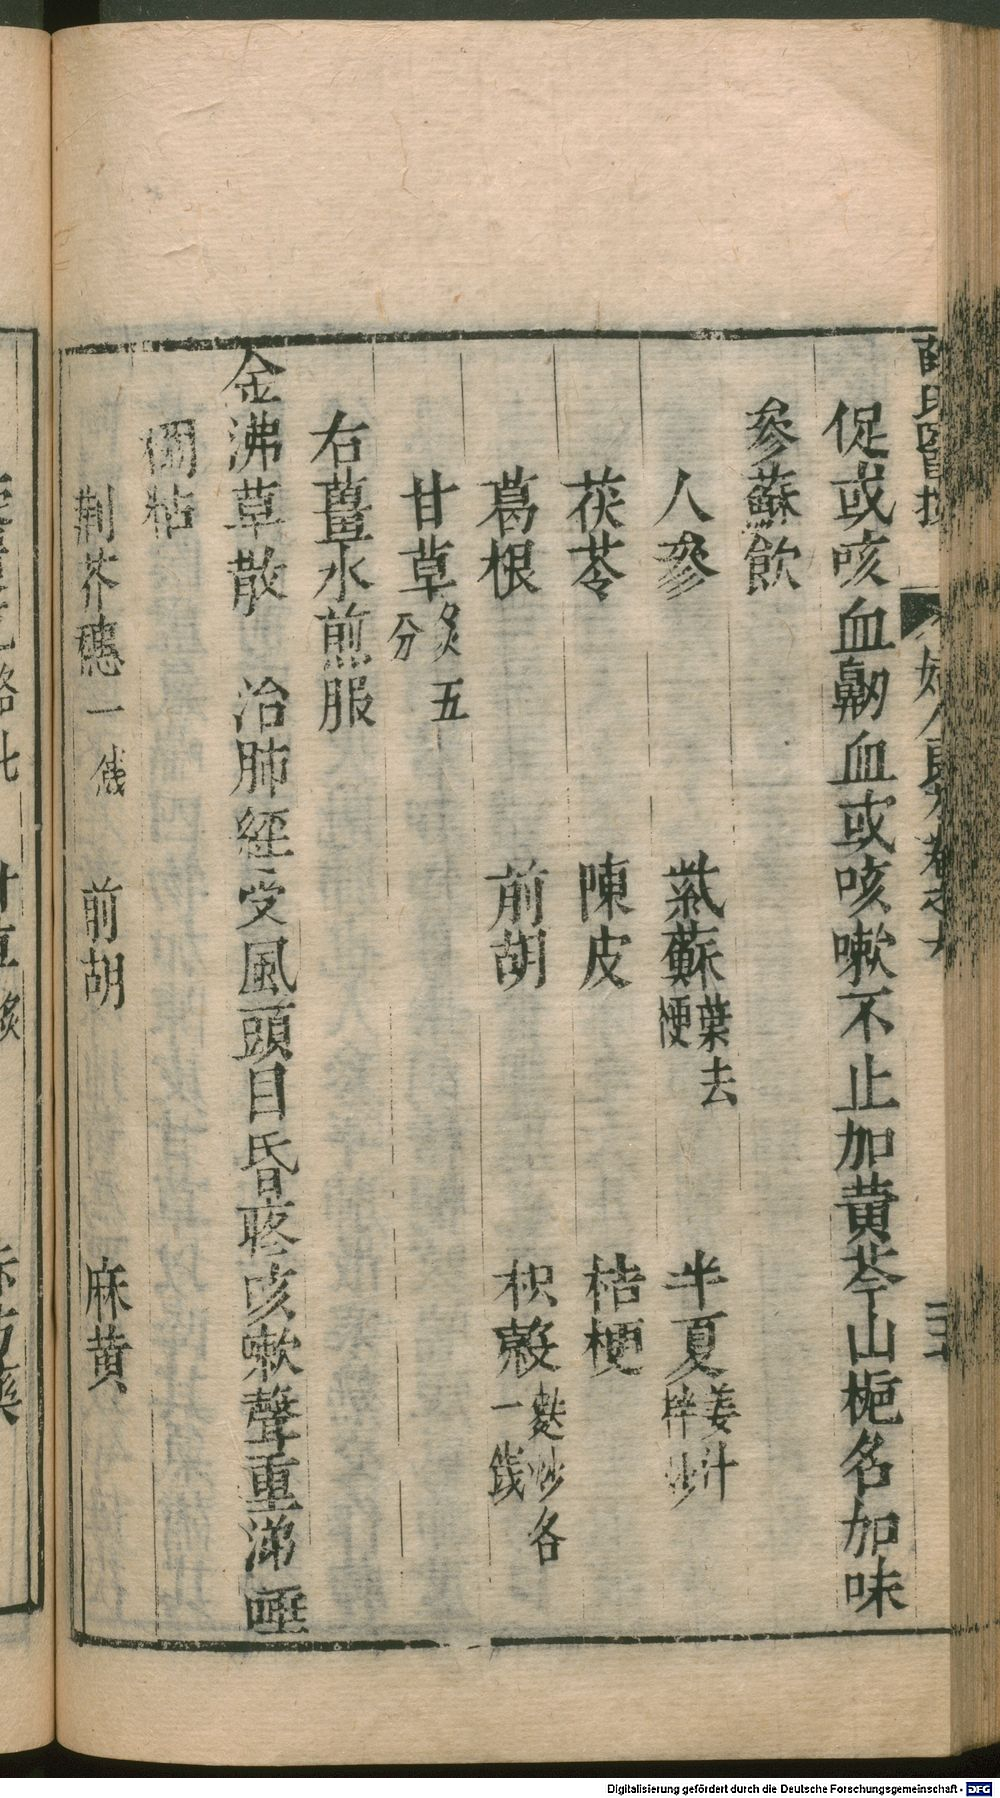 促或咳血衂血或咳嗽不止加黄芩山梔名加味
參蘇飲
人參 紫蘇葉去梗 半夏姜汁拌炒
茯苓 陳皮 桔梗
葛根 前胡 枳殼麩炒各一錢
甘草炙五分
右薑水煎服
金沸草散 治肺經受風頭目昏疼咳嗽聲重涕唾
稠粘
荆芥穗一錢 前胡 麻黄
Digitalisierung gefördert durch die Deutsche Forschungsgemeinschaft - DFG